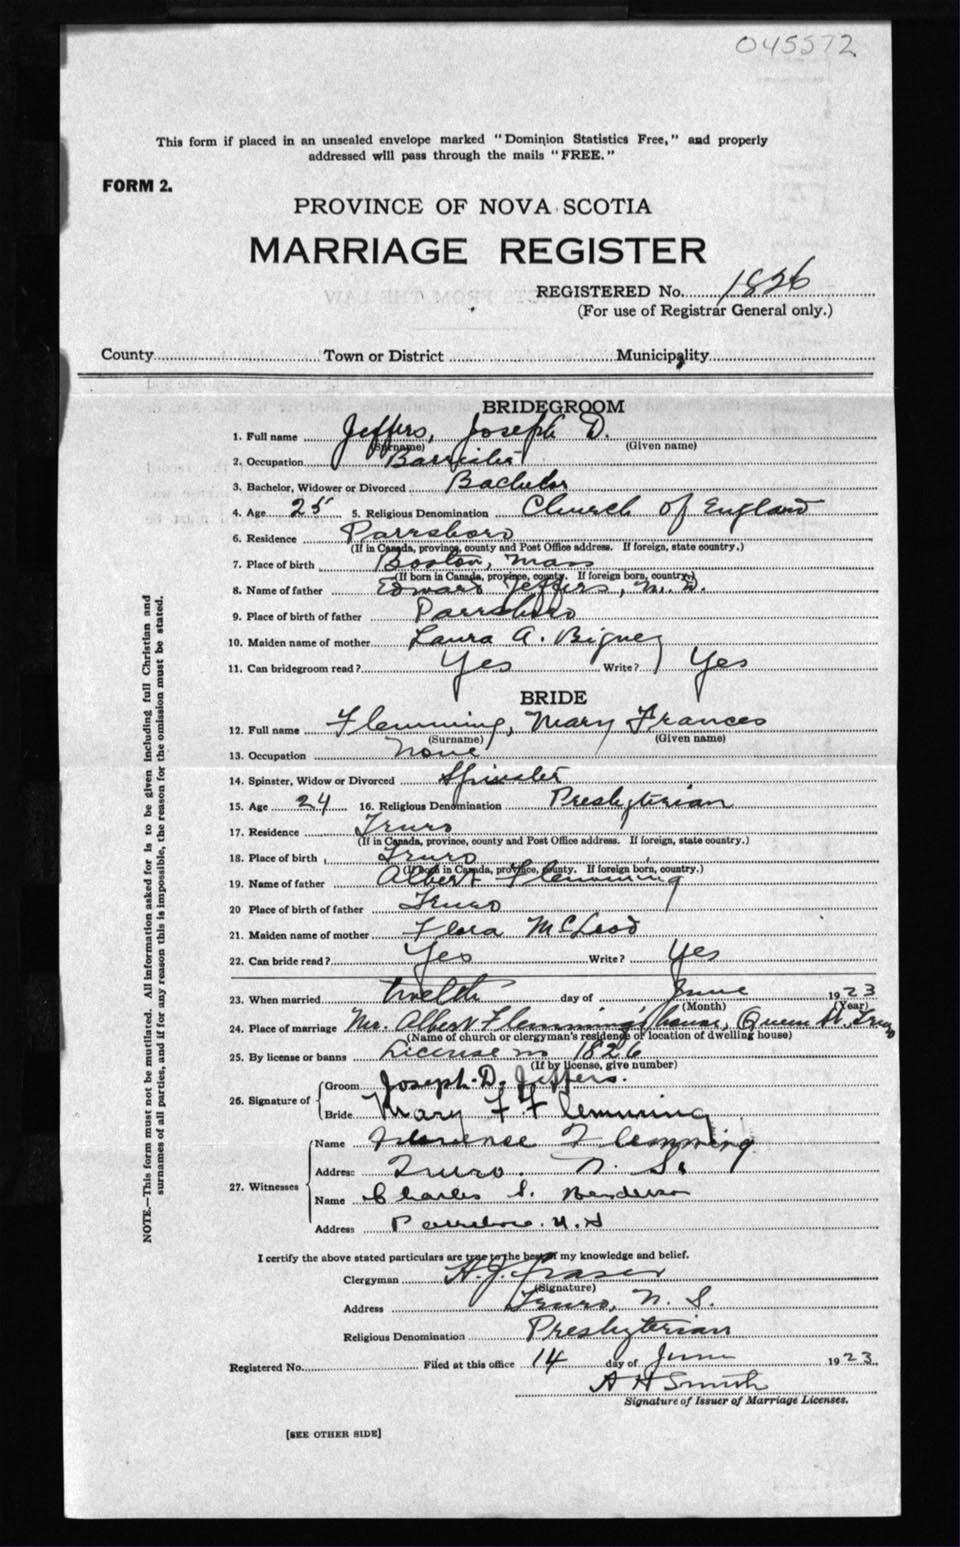 045572
This form if placed in an unsealed envelope marked "Dominion Statistics Free," and properly
addressed will pass through the mails "FREE."
FORM 2.
PROVINCE OF NOVA SCOTIA
MARRIAGE REGISTER
REGISTERED No. 1826
(For use of Registrar General only.)
County Town or District Municipality
BRIDEGROOM
1. Full name Jeffers, Joseph D.
(Surname) (Given name)
2. Occupation Barrister
3. Bachelor, Widower or Divorced Bachelor
4. Age 25 5. Religious Denomination Church of England
6. Residence Parrsboro
(If in Canada, province, county and Post Office address. If foreign, state country.)
7. Place of birth Boston, Mass
(If born in Canada, province, county. If foreign born, country.)
8. Name of father Edward Jeffers, M.D.
9. Place of birth of father Parrsboro
10. Maiden name of mother Laura A. Bigney
11. Can bridegroom read? Yes Write? Yes
BRIDE
12. Full name Flemming, Mary Frances
(Surname) (Given name)
13. Occupation None
14. Spinster, Widow or Divorced Spinster
15. Age 24 16. Religious Denomination Presbyterian
17. Residence Truro
(If in Canada, province, county and Post Office address. If foreign, state country.)
18. Place of birth Truro
(If born in Canada, province, county. If foreign born, country.)
19. Name of father Albert Flemming
20 Place of birth of father Truro
21. Maiden name of mother Flora McLeod
22. Can bride read? Yes Write? Yes
23. When married twelfth day of June 1923
(Month) (Year)
24. Place of marriage Mr. Albert Flemming's house, Queen St. Truro
(Name of church or clergyman's residence or location of dwelling house)
25. By license or banns License no 1826
(If by license, give number)
26. Signature of Groom Joseph D. Jeffers.
Bride Mary F Flemming
27. Witnesses Name Florence Flemming
Address Truro. N. S.
Name Charles S. Henderson
Address Parrsboro. N.S
I certify the above stated particulars are true to the best of my knowledge and belief.
Clergyman A. J. Fraser
(Signature)
Address Truro, N. S.
Religious Denomination Presbyterian
Registered No. Filed at this office 14 day of June 1923.
A H Smith
Signature of Issuer of Marriage Licenses.
[SEE OTHER SIDE]
NOTE.—This form must not be mutilated. All information asked for is to be given including full Christian and
surnames of all parties, and if for any reason this is impossible, the reason for the omission must be stated.